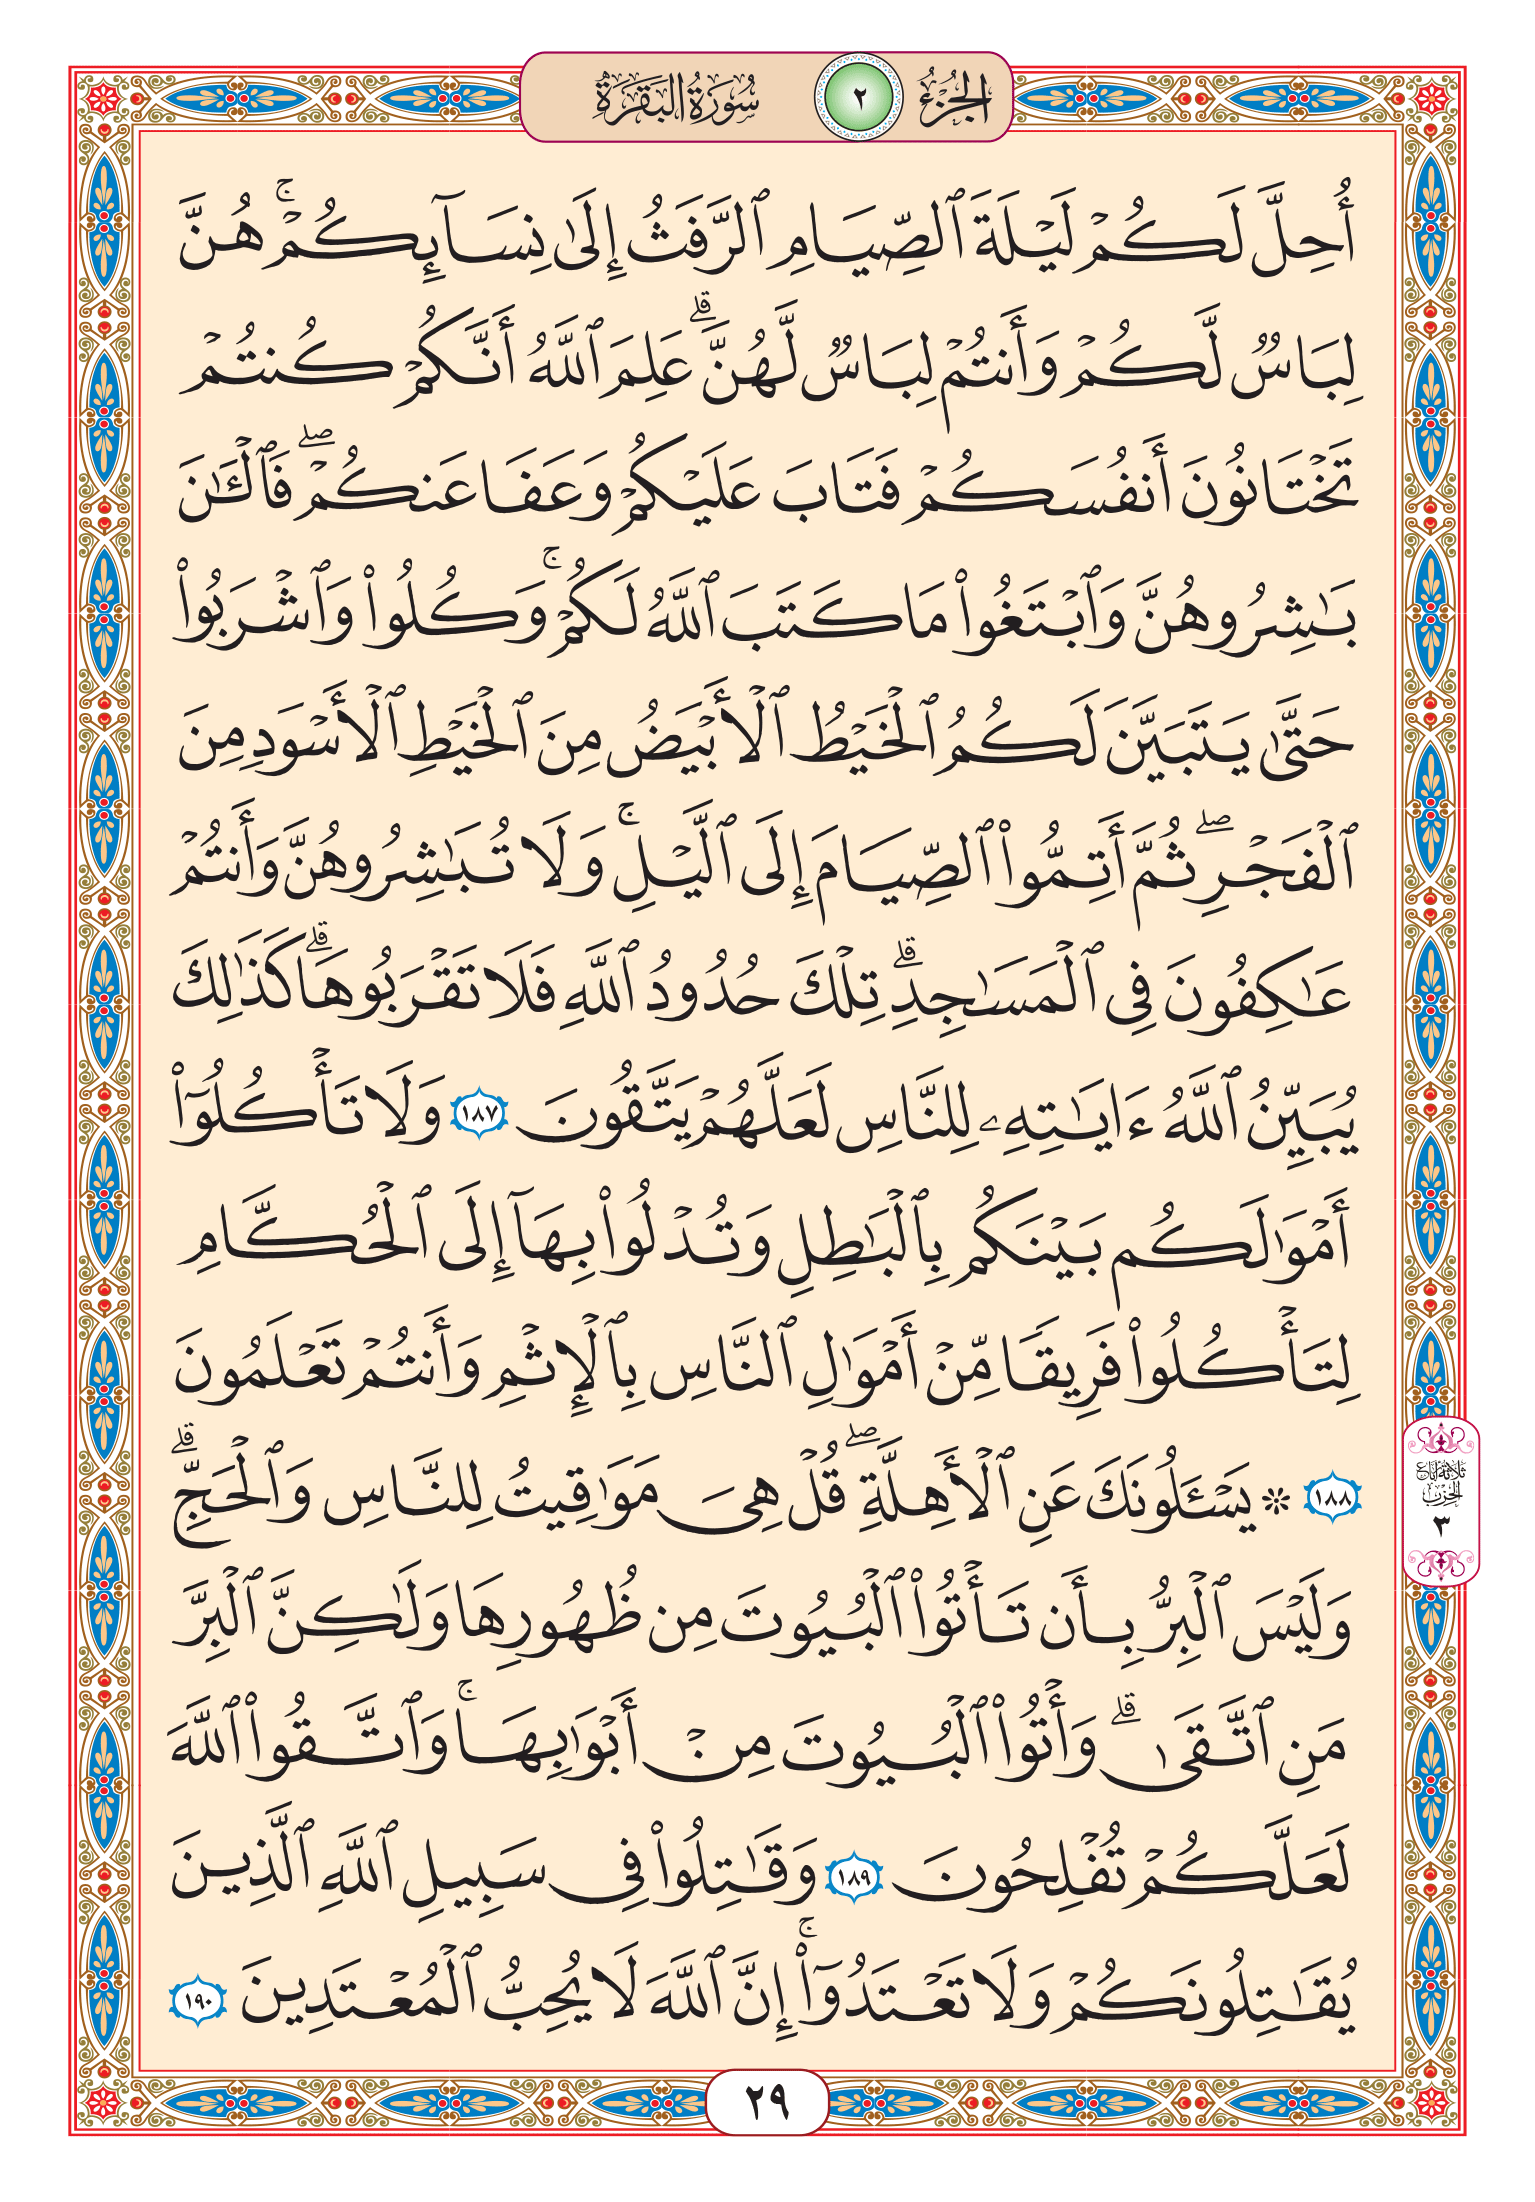 الجزء ٢ سورة البقرة
أُحِلَّ لَكُمْ لَيْلَةَ ٱلصِّيَامِ ٱلرَّفَثُ إِلَىٰ نِسَآئِكُمْۚ هُنَّ
لِبَاسٌ لَّكُمْ وَأَنتُمْ لِبَاسٌ لَّهُنَّۗ عَلِمَ ٱللَّهُ أَنَّكُمْ كُنتُمْ
تَخْتَانُونَ أَنفُسَكُمْ فَتَابَ عَلَيْكُمْ وَعَفَا عَنكُمْۖ فَٱلْـَٰٔنَ
بَٰشِرُوهُنَّ وَٱبْتَغُوا۟ مَا كَتَبَ ٱللَّهُ لَكُمْۚ وَكُلُوا۟ وَٱشْرَبُوا۟
حَتَّىٰ يَتَبَيَّنَ لَكُمُ ٱلْخَيْطُ ٱلْأَبْيَضُ مِنَ ٱلْخَيْطِ ٱلْأَسْوَدِ مِنَ
ٱلْفَجْرِۖ ثُمَّ أَتِمُّوا۟ ٱلصِّيَامَ إِلَى ٱلَّيْلِۚ وَلَا تُبَٰشِرُوهُنَّ وَأَنتُمْ
عَٰكِفُونَ فِى ٱلْمَسَٰجِدِۗ تِلْكَ حُدُودُ ٱللَّهِ فَلَا تَقْرَبُوهَاۗ كَذَٰلِكَ
يُبَيِّنُ ٱللَّهُ ءَايَٰتِهِۦ لِلنَّاسِ لَعَلَّهُمْ يَتَّقُونَ ١٨٧ وَلَا تَأْكُلُوٓا۟
أَمْوَٰلَكُم بَيْنَكُم بِٱلْبَٰطِلِ وَتُدْلُوا۟ بِهَآ إِلَى ٱلْحُكَّامِ
لِتَأْكُلُوا۟ فَرِيقًا مِّنْ أَمْوَٰلِ ٱلنَّاسِ بِٱلْإِثْمِ وَأَنتُمْ تَعْلَمُونَ
١٨٨ ۞ يَسْـَٔلُونَكَ عَنِ ٱلْأَهِلَّةِۖ قُلْ هِىَ مَوَٰقِيتُ لِلنَّاسِ وَٱلْحَجِّۗ
وَلَيْسَ ٱلْبِرُّ بِأَن تَأْتُوا۟ ٱلْبُيُوتَ مِن ظُهُورِهَا وَلَٰكِنَّ ٱلْبِرَّ
مَنِ ٱتَّقَىٰۗ وَأْتُوا۟ ٱلْبُيُوتَ مِنْ أَبْوَٰبِهَاۚ وَٱتَّقُوا۟ ٱللَّهَ
لَعَلَّكُمْ تُفْلِحُونَ ١٨٩ وَقَٰتِلُوا۟ فِى سَبِيلِ ٱللَّهِ ٱلَّذِينَ
يُقَٰتِلُونَكُمْ وَلَا تَعْتَدُوٓا۟ۚ إِنَّ ٱللَّهَ لَا يُحِبُّ ٱلْمُعْتَدِينَ ١٩٠
ثلاثة أرباع
الحزب
٣
٢٩